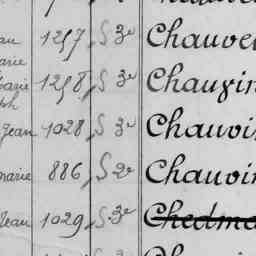 1257 S 3e Chauve
1258 S 3e Chauzin
Jean 1028 S 3e Chauvi
marie 886 S 2e Chauvin
Jean 1029 S 3e Chedma